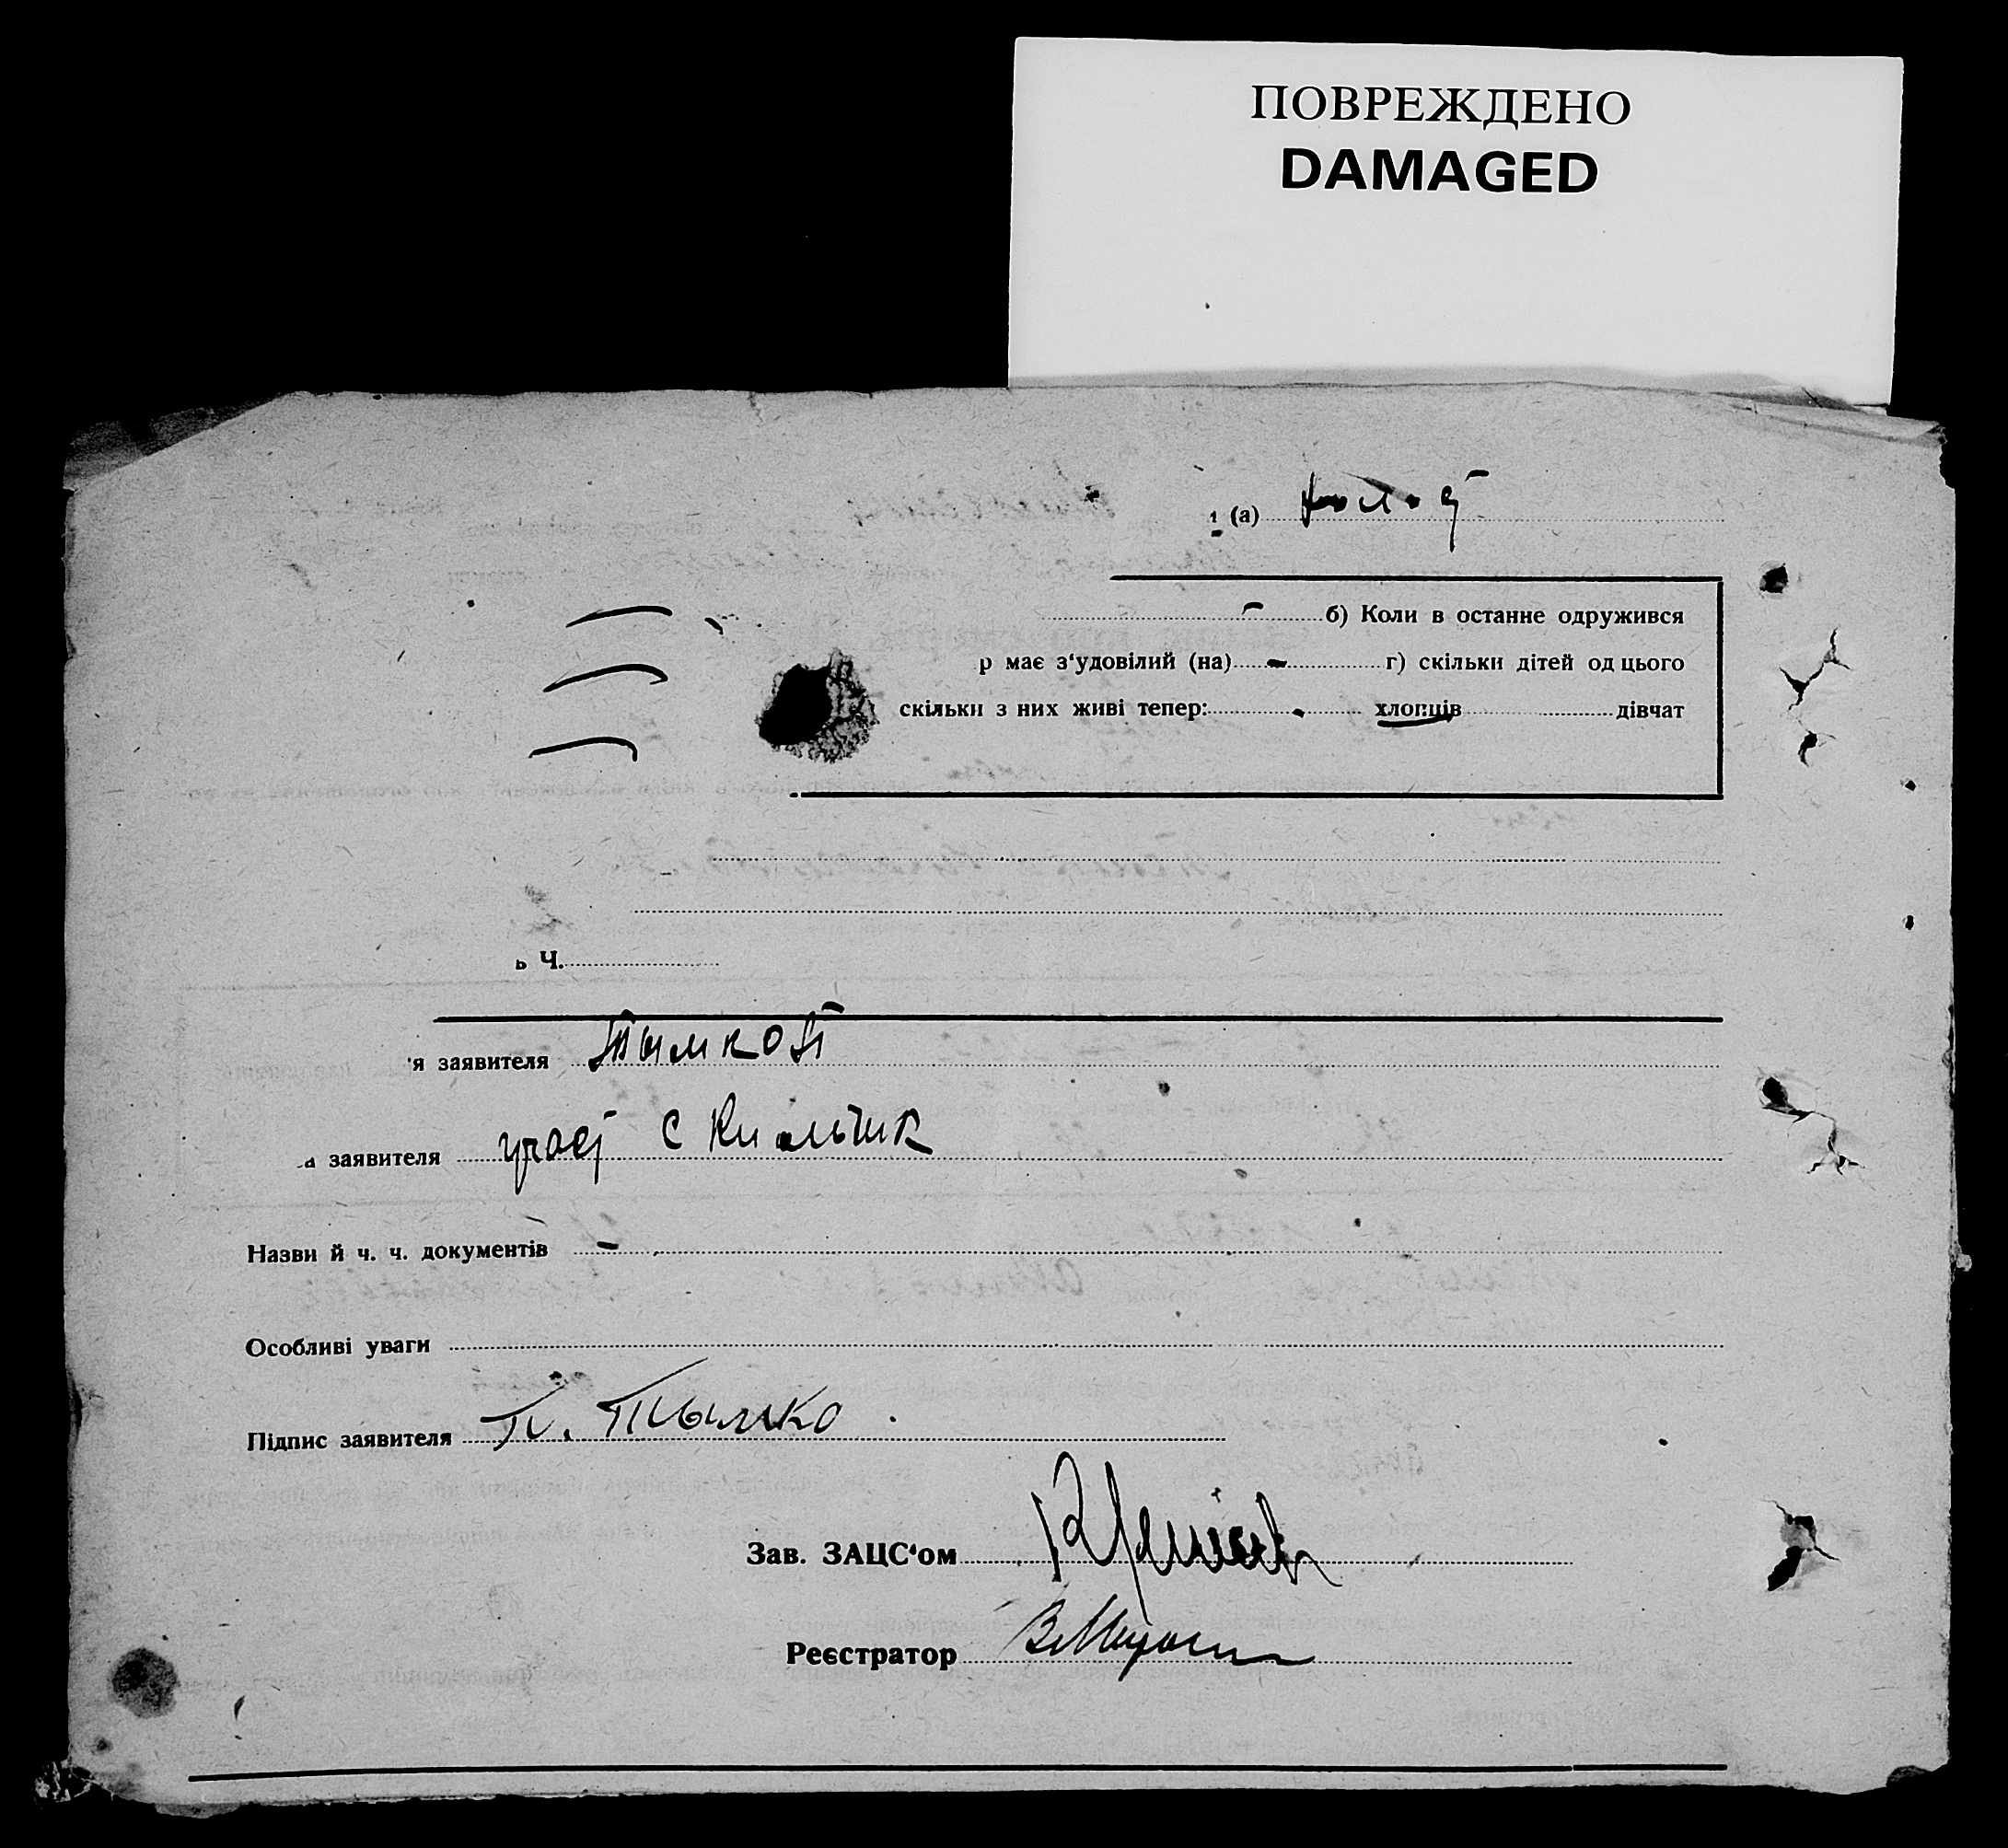 ПОВРЕЖДЕНО
DAMAGED
(а)
б) Коли в останнє одружився
р має з'удовілий (на) г) скільки дітей од цього
скільки з них живі тепер: хлопців дівчат
ь Ч.
'я заявителя Тымко П
а заявителя с
Назви й ч. ч. документів -
Особливі уваги
Підпис заявителя П. Тымко
Зав. ЗАЦС'ом
Реєстратор